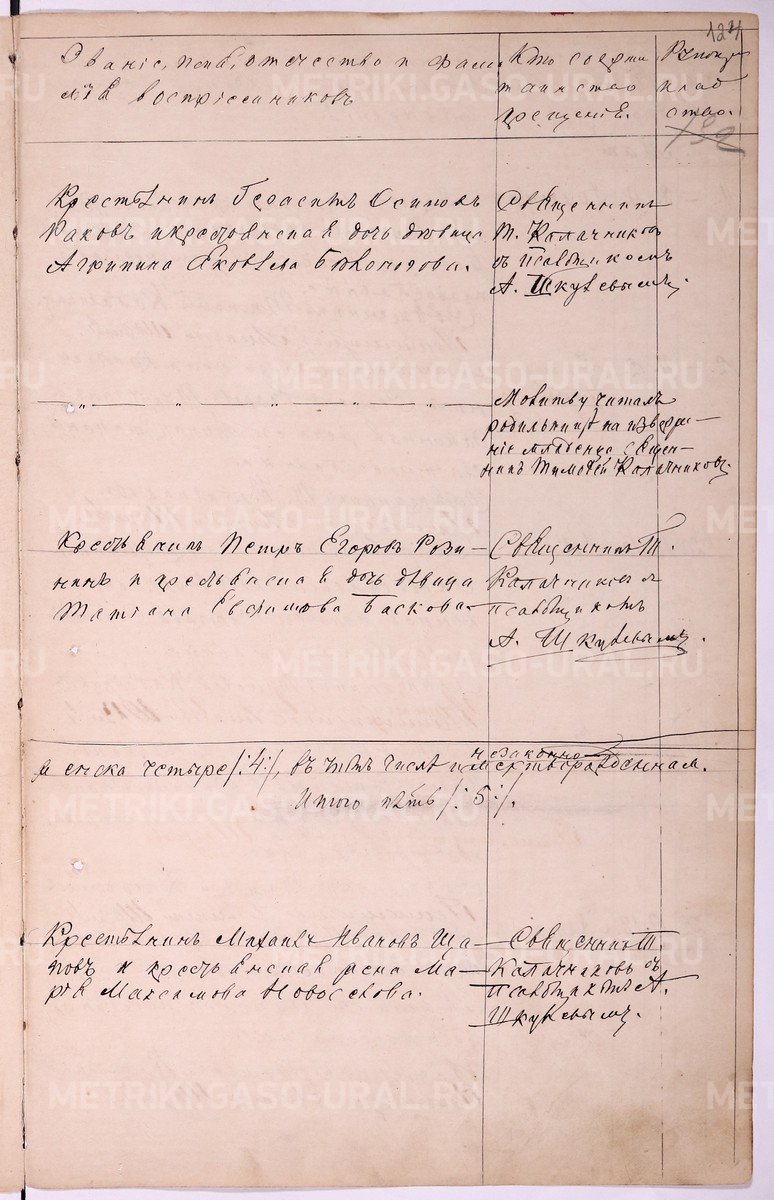 124
Званіе, имя, отечество и фами-
лія воспріемниковъ
Кто соверш.
таинство
крещенія.
Рукопри
клад
ство.
Крестьянинъ Герасимъ Осиповъ
Раковъ и крестьянская дочь дѣвица
Агрипина Яковлева Бѣломодова.
Священникъ
Т. Калачниковъ
съ псаломщикомъ
А. Шкуѣвымъ.
Молитву читалъ
родильницѣ на изверже-
ніе младенца Священ-
никъ Тимофей Калачниковъ.
Крестьянинъ Петръ Егоровъ Рози-
нинъ и крестьянская дочь дѣвица
Татіана Евфимова Баскова.
Священникъ Т.
Калачниковъ и
псаломщикомъ
А. Шкуѣвымъ.
незаконно
женска четыре /:4:/, въ томъ числѣ и мертворожденная.
Итого пять /:5:/.
Крестьянинъ Михаилъ Ивановъ Ща-
повъ и крестьянская жена Ма-
рія Максимова Новоселова.
Священникъ Т.
Калачниковъ съ
псаломщикомъ А.
Шкуѣвымъ.
METRIKI.GASO-URAL.RU